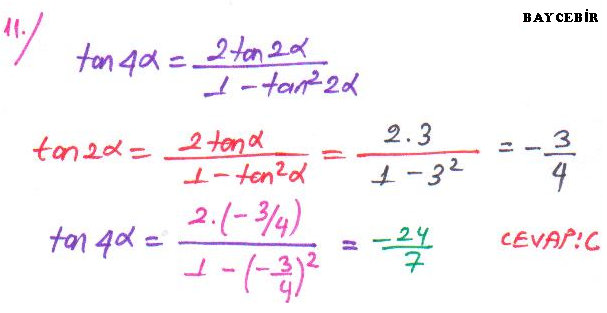 BAYCEBİR
11.) tan4α = 2tan2α / 1 - tan²2α
tan2α = 2tanα / 1 - tan²α = 2.3 / 1 - 3² = - 3/4
tan4α = 2.(-3/4) / 1 - (-3/4)² = -24/7 CEVAP:C